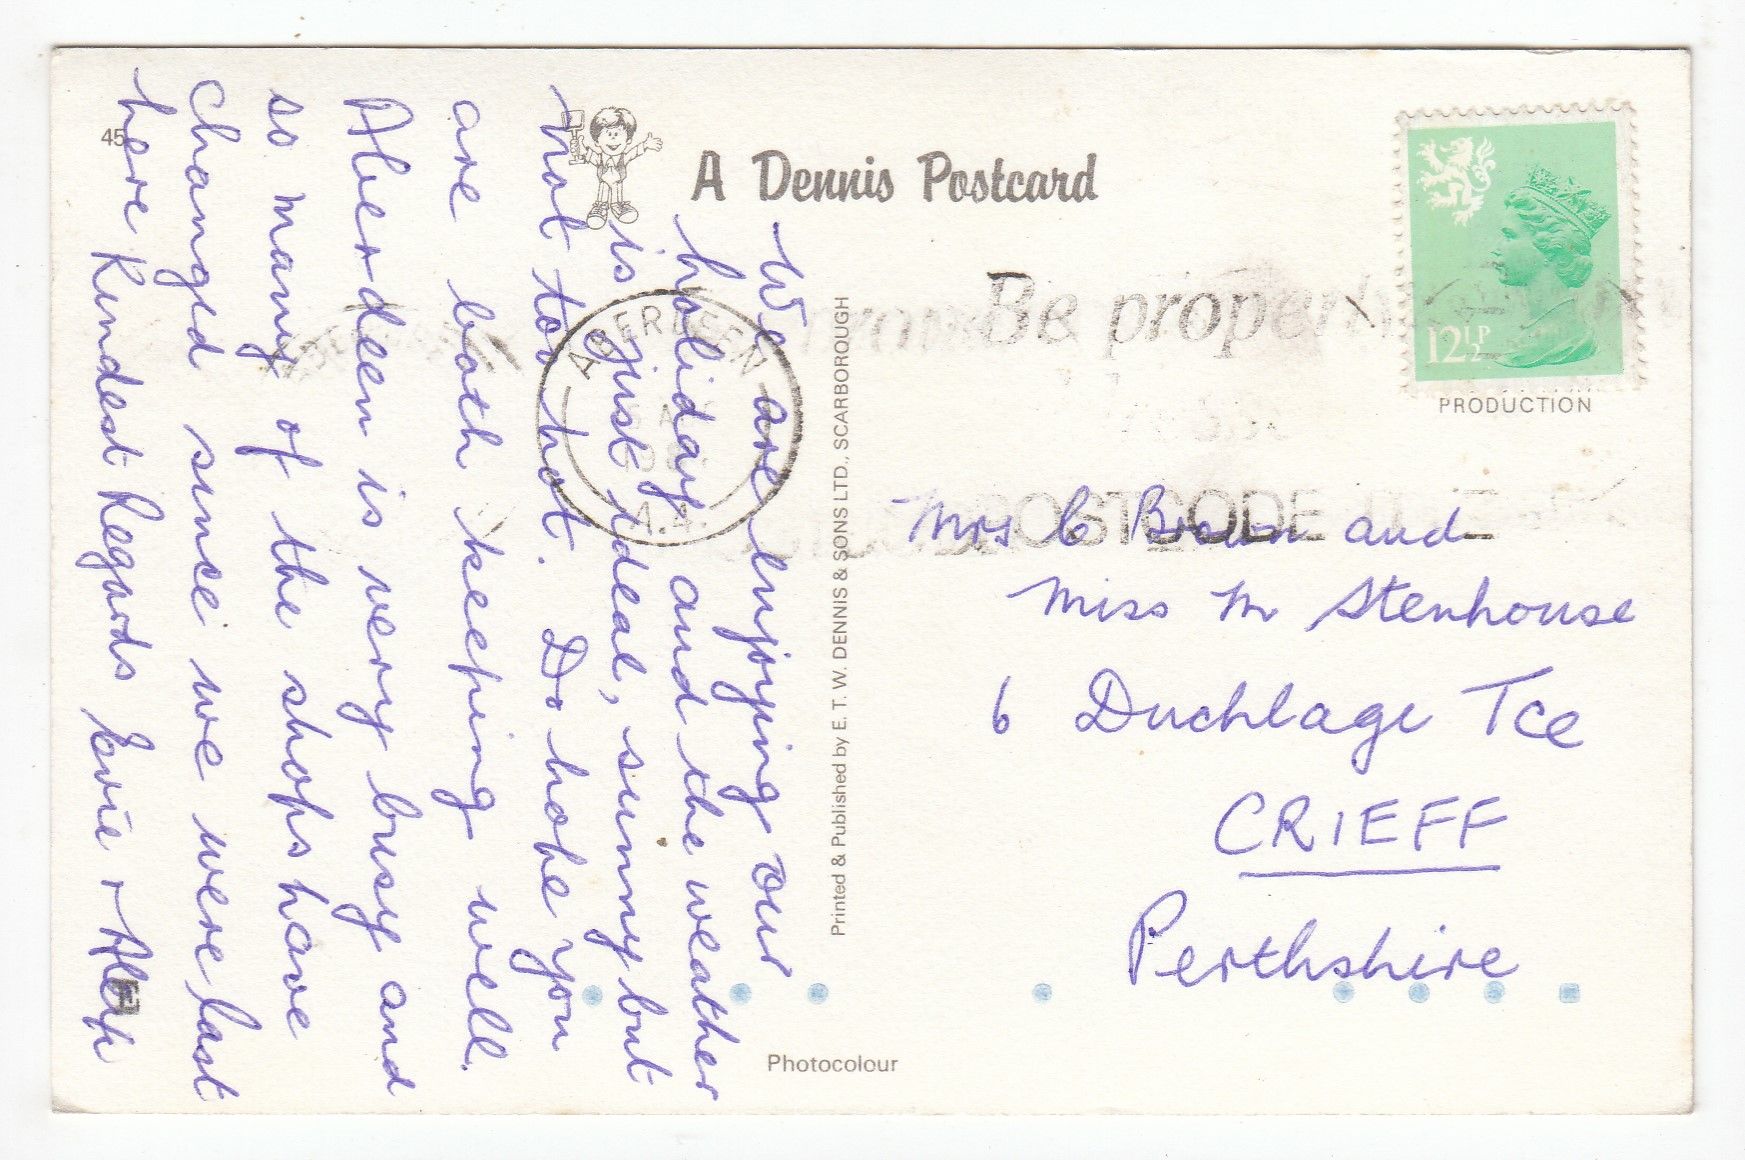 A Dennis Postcard
We are enjoying our
holiday and the weather
is just ideal, sunny but
not too hot. Do hope you
are both keeping well.
Aberdeen is very busy and
so many of the shops have
changed since we were last
here Kindest Regards Evie +
45
ABERDEEN
Printed & Published by E. T. W. DENNIS & SONS LTD., SCARBOROUGH
Photocolour
Be properly
POSTCODE
12½P
PRODUCTION
Mrs C Brown and
Miss M Stenhouse
6 Duchlage Tce
CRIEFF
Perthshire